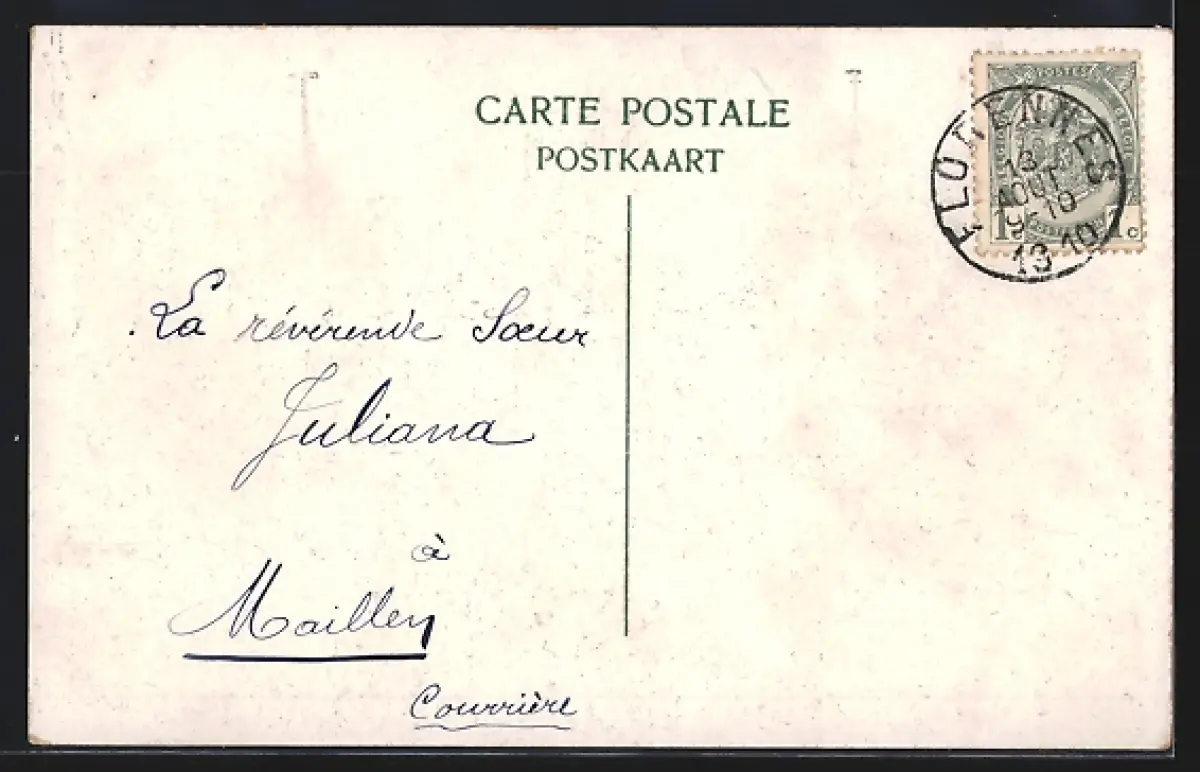 CARTE POSTALE
POSTKAART
FLORENNES
13
AOUT
9-10
1910
1 c
La révérende Sœur
Juliana
à
Maillen
Courrière